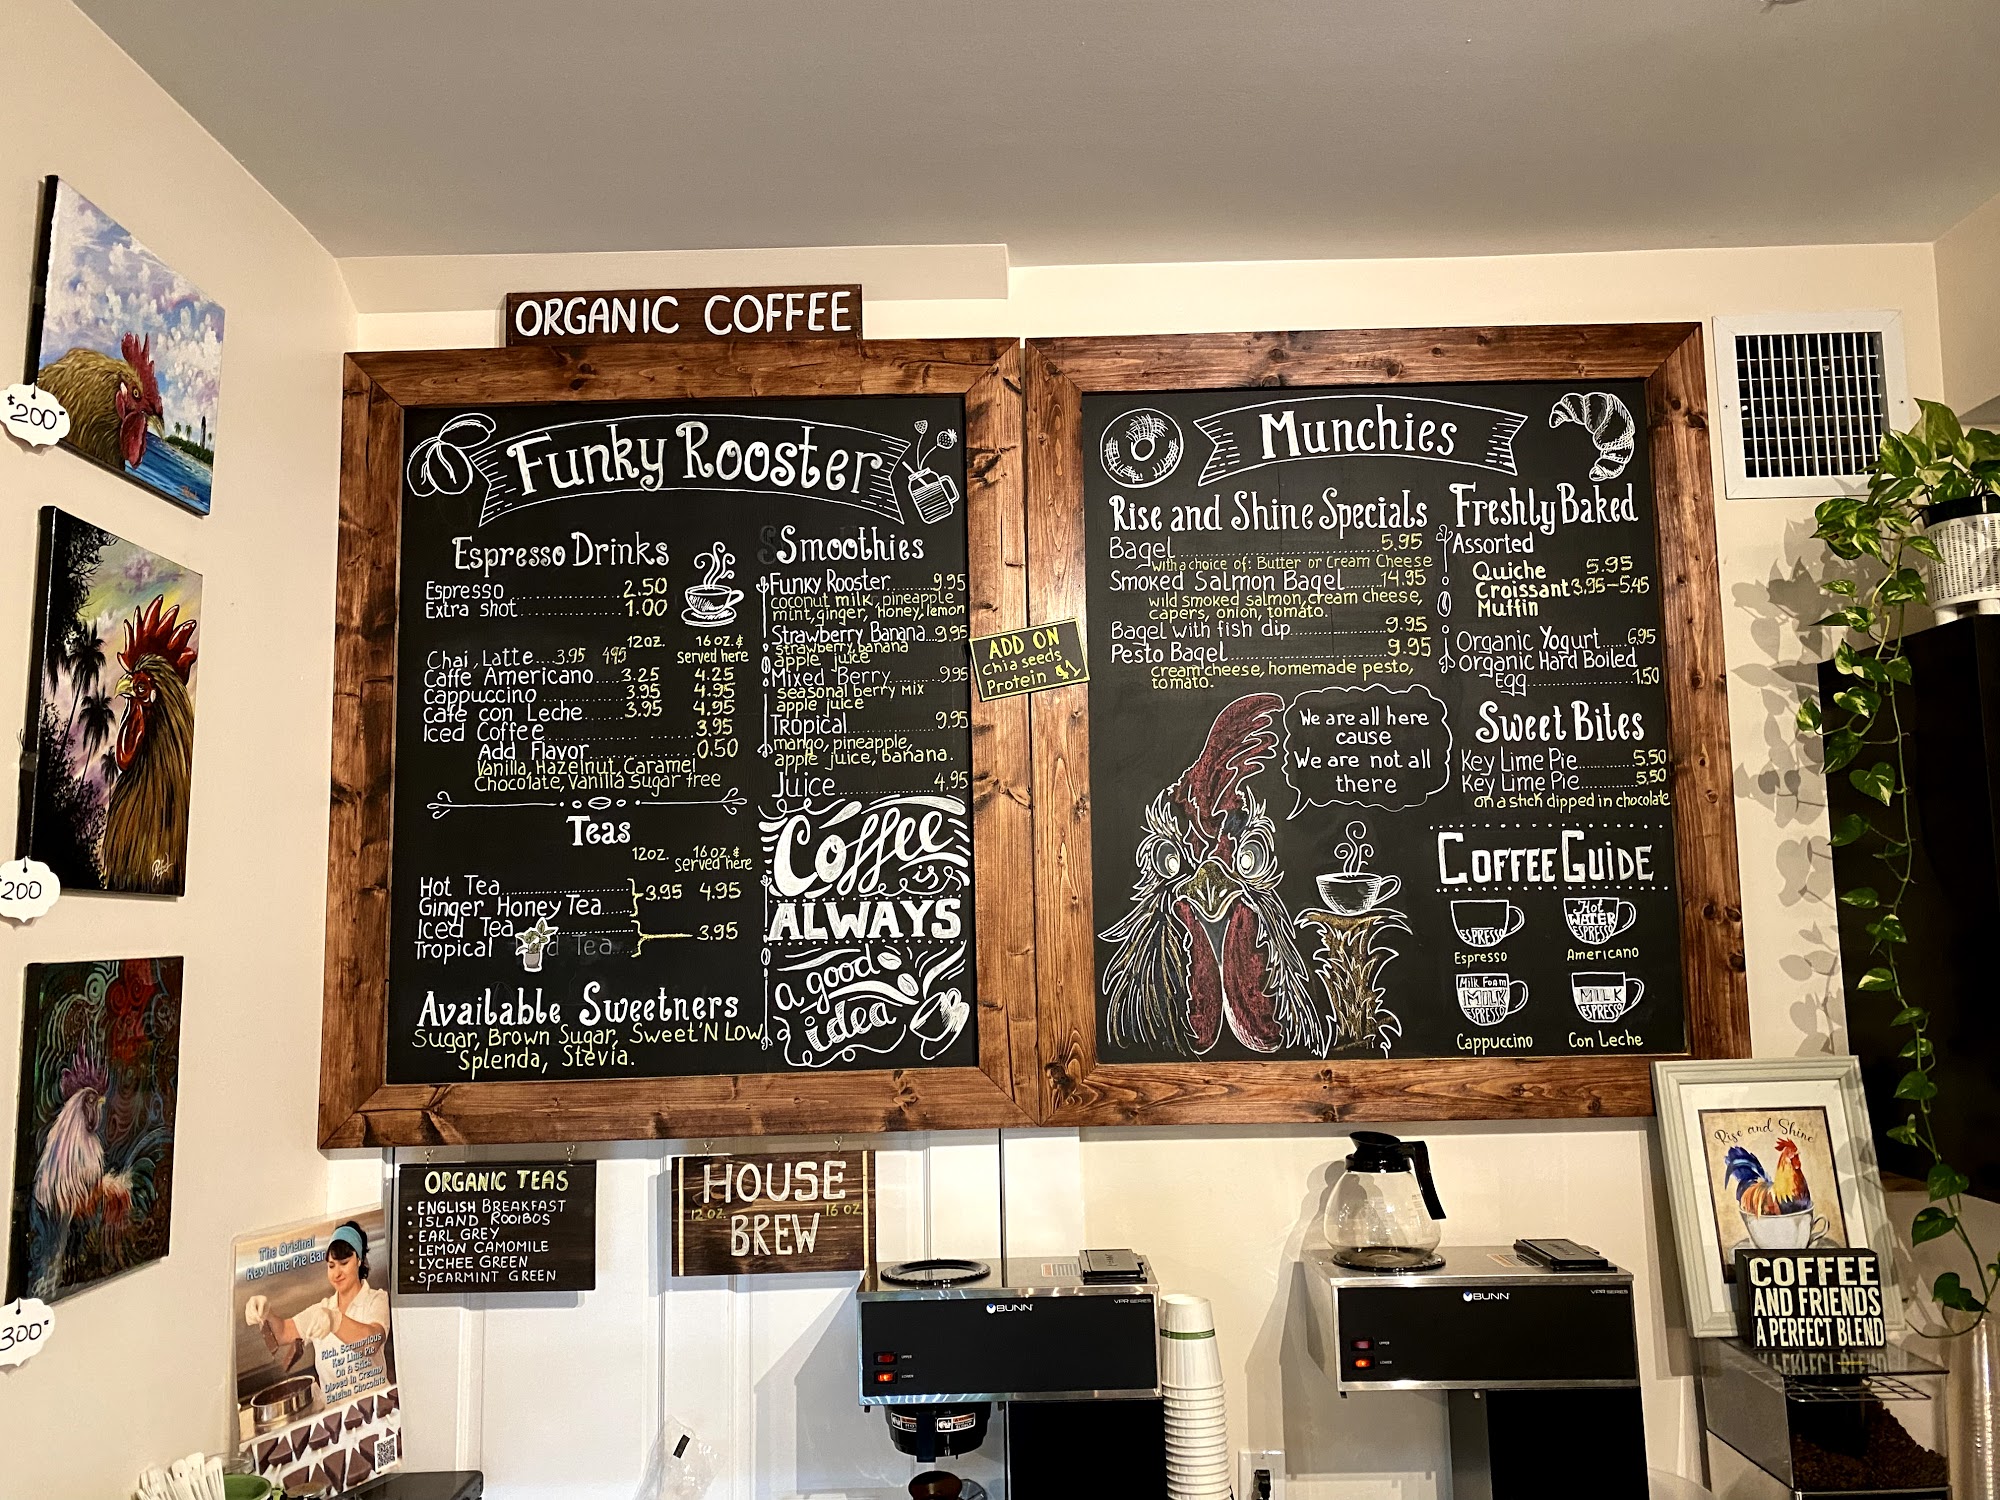 ORGANIC COFFEE
Funky Rooster
Espresso Drinks
Espresso 2.50
Extra shot 1.00
12oz. 16 oz. &
served here
Chai Latte 3.95 4.95
Caffe Americano 3.25 4.25
Cappuccino 3.95 4.95
Cafe con Leche 3.95 4.95
Iced Coffee 3.95
Add Flavor 0.50
Vanilla, Hazelnut, Caramel
Chocolate, Vanilla Sugar free
Teas
12oz. 16 oz. &
served here
Hot Tea 3.95 4.95
Ginger Honey Tea
Iced Tea 3.95
Tropical Tea
Available Sweetners
Sugar, Brown Sugar, Sweet'N Low,
Splenda, Stevia.
Smoothies
Funky Rooster 9.95
coconut milk, pineapple
mint, ginger, honey, lemon
Strawberry Banana 9.95
strawberry, banana
apple juice
Mixed Berry 9.95
seasonal berry mix
apple juice
Tropical 9.95
mango, pineapple,
apple juice, banana.
Juice 4.95
Coffee
is
ALWAYS
a good
idea
ADD ON
Chia seeds
Protein $1
Munchies
Rise and Shine Specials
Bagel 5.95
with a choice of: Butter or Cream Cheese
Smoked Salmon Bagel 14.95
wild smoked salmon, cream cheese,
capers, onion, tomato.
Bagel with fish dip 9.95
Pesto Bagel 9.95
cream cheese, homemade pesto,
tomato.
We are all here
cause
We are not all
there
Freshly Baked
Assorted
Quiche 5.95
Croissant 3.95-5.45
Muffin
Organic Yogurt 6.95
Organic Hard Boiled
Egg 1.50
Sweet Bites
Key Lime Pie 5.50
Key Lime Pie 5.50
on a stick dipped in chocolate
COFFEE GUIDE
ESPRESSO
Espresso
Hot
WATER
ESPRESSO
Americano
Milk Foam
MILK
ESPRESSO
Cappuccino
MILK
ESPRESSO
Con Leche
$200
200
300
ORGANIC TEAS
• ENGLISH BREAKFAST
• ISLAND ROOIBOS
• EARL GREY
• LEMON CAMOMILE
• LYCHEE GREEN
• SPEARMINT GREEN
HOUSE
12 OZ. 16 OZ.
BREW
The Original
Key Lime Pie Bar
Rich, Scrumptious
Key Lime Pie
On A Stick
Dipped in Creamy
Belgian Chocolate
BUNN
VPR SERIES
UPPER
LOWER
BUNN
VPR SERIES
UPPER
LOWER
Rise and Shine
COFFEE
AND FRIENDS
A PERFECT BLEND